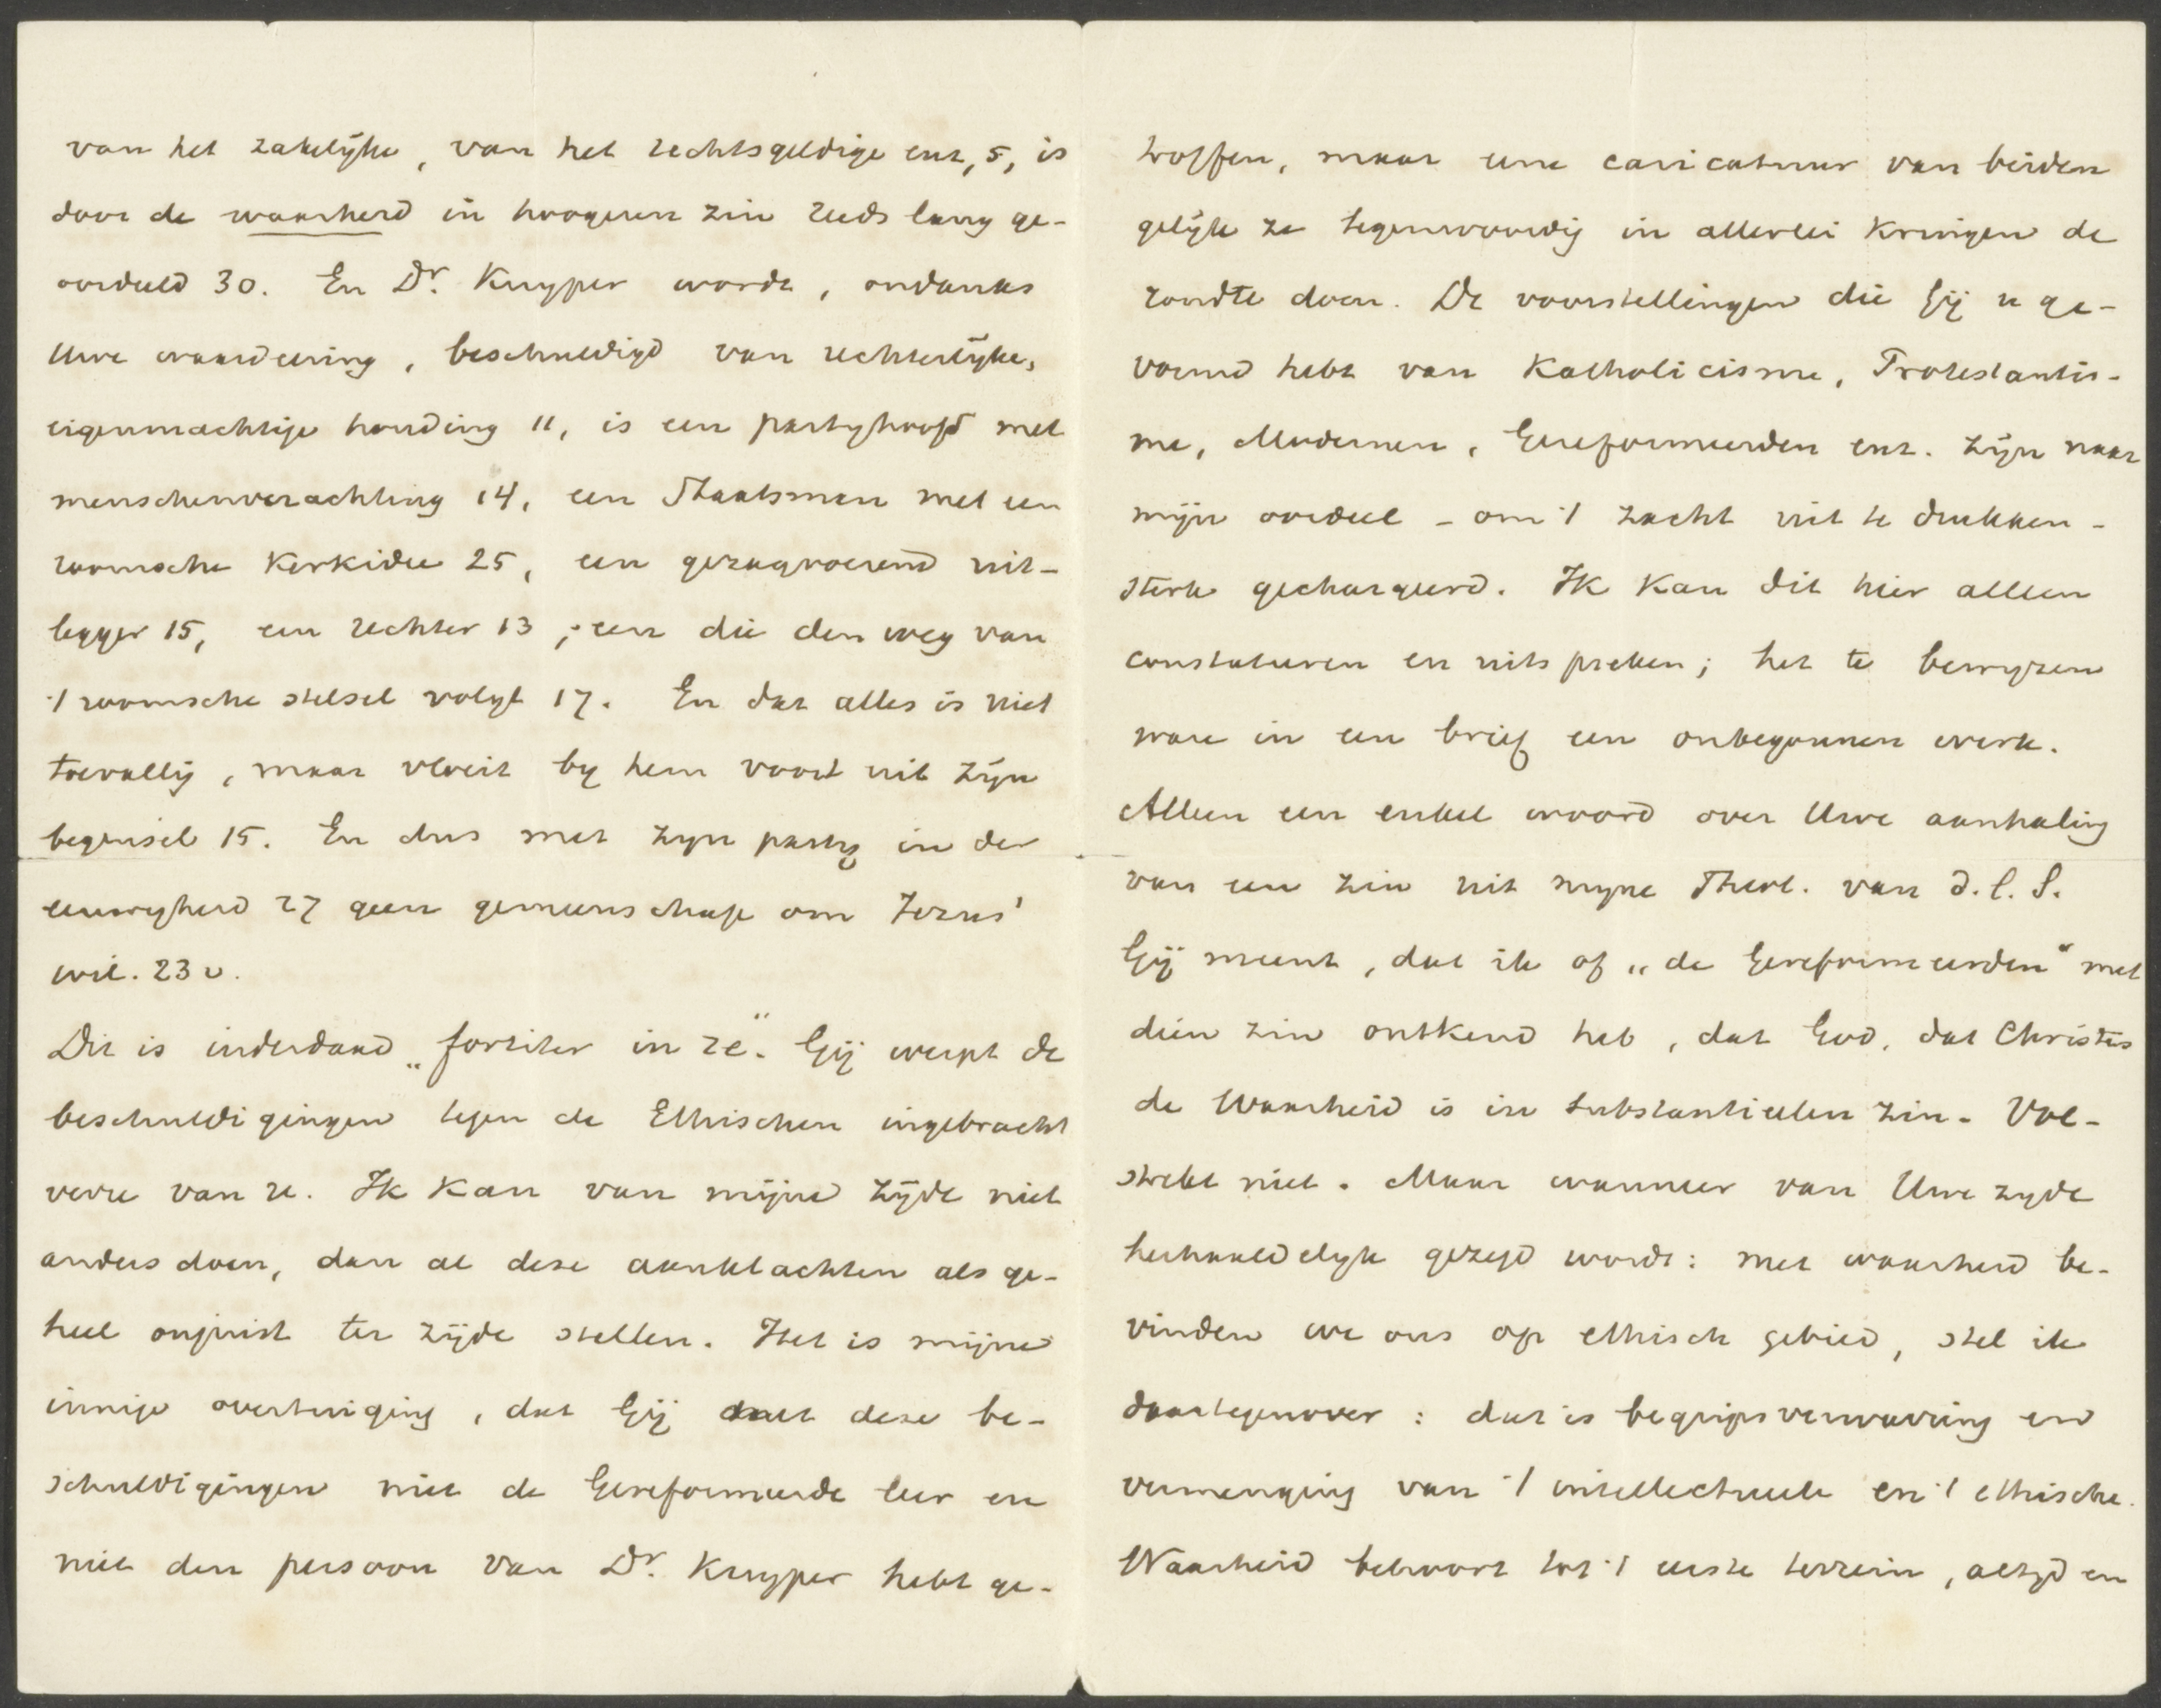 van het zakelijke, van het rechtsgeldige enz, 5, is
door de waarheid in hoogeren zin reeds lang ge-
oordeeld 30. En Dr. Kuyper wordt, ondanks
Uwe waardeering, beschuldigd van rechterlijke,
eigenmachtige houding 11, is een partyhoofd met
menschenverachting 14, een Staatsman met een
roomsche Kerkidee 25, een gezagvoerend uit-
legger 15, een rechter 13, een die den weg van
't roomsche stelsel volgt 17. En dat alles is niet
toevallig, maar vloeit by hem voort uit zijn
beginsel 15. En dus met zyn party in der
eeuwigheid 27 geen gemeenschap om Jezus'
wil. 23 v.
Dit is inderdaad „fortiter in re". Gij werpt de
beschuldigingen tegen de Ethischen ingebracht
verre van u. Ik kan van mijne zijde niet
anders doen, dan al deze aanklachten als ge-
heel onjuist ter zijde stellen. Het is mijne
innige overtuiging, dat Gij met deze be-
schuldigingen niet de Gereformeerde leer en
niet den persoon van Dr. Kuyper hebt ge-
troffen, maar eene caricatuur van beiden
gelijk ze tegenwoordig in allerlei kringen de
rondte doen. De voorstellingen die Gij u ge-
vormd hebt van Katholicisme, Protestantis-
me, Modernen, Gereformeerden enz. zijn naar
mijn oordeel - om 't zacht uit te drukken -
sterk gechargeerd. Ik kan dit hier alleen
constateeren en uitspreken; het te bewyzen
ware in een brief een onbegonnen werk.
Alleen een enkel woord over Uwe aanhaling
van een zin uit myne Theol. van d. l. S.
Gij meent, dat ik of „de Gereformeerden" met
dien zin ontkend heb, dat God, dat Christus
de Waarheid is in substantieelen zin. Vol-
strekt niet. Maar wanneer van Uwe zyde
herhaaldelyk gezegd wordt: met waarheid be-
vinden we ons op ethisch gebied, stel ik
daartegenover: dat is begripsverwarring en
vermenging van 't intellectueele en 't ethische.
Waarheid behoort tot 't eerste terrein, altyd en